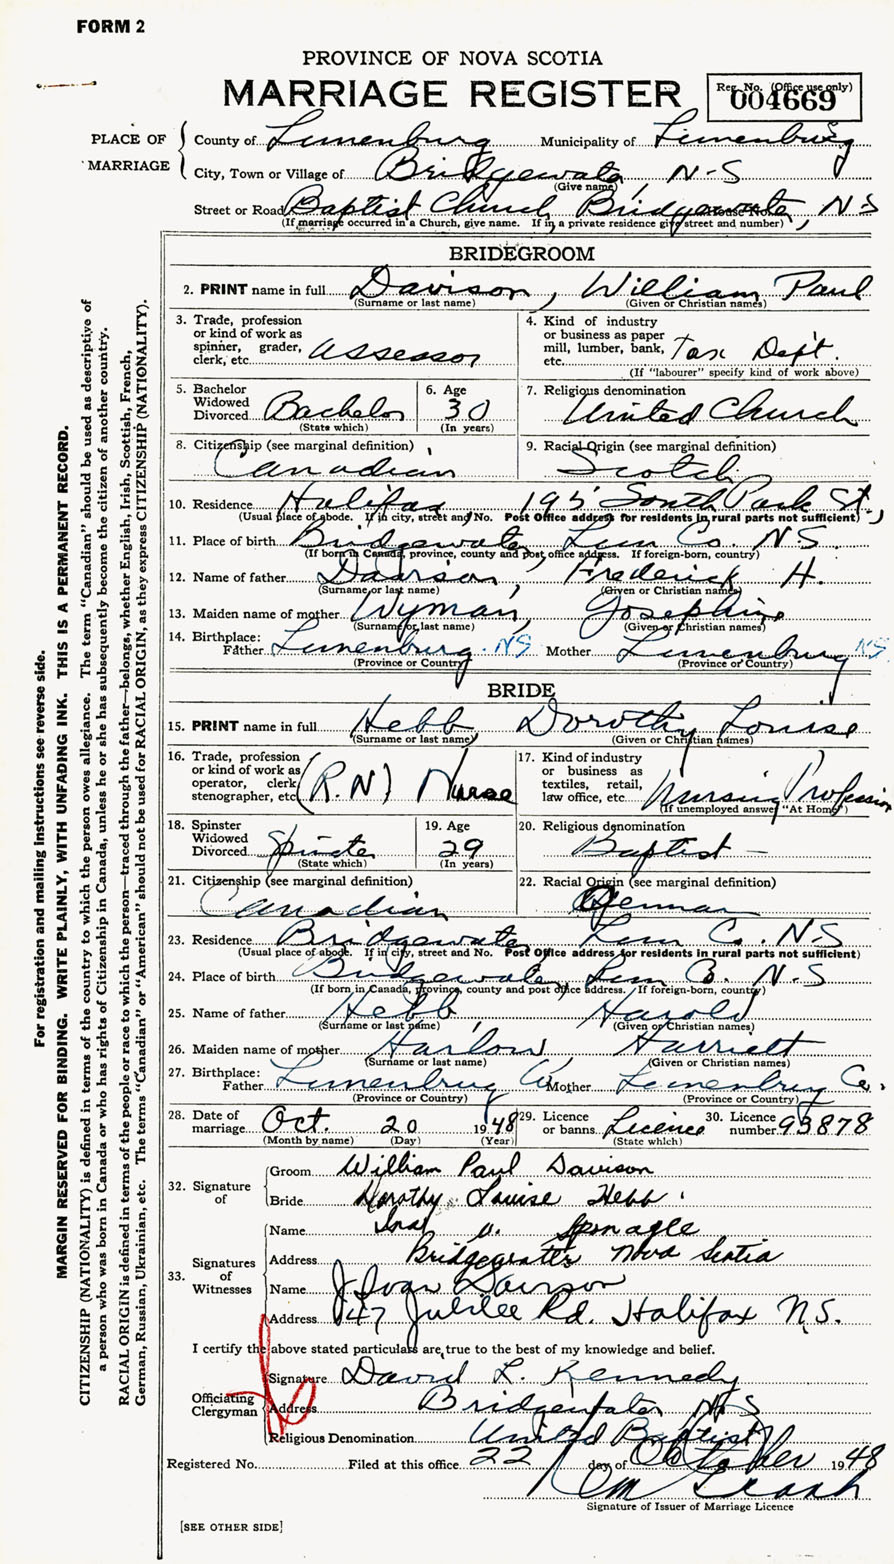 FORM 2
PROVINCE OF NOVA SCOTIA
MARRIAGE REGISTER
Reg. No. (Office use only)
004669
PLACE OF MARRIAGE
County of Lunenburg Municipality of Lunenburg
City, Town or Village of Bridgewater, N-S
(Give name)
Street or Road Baptist Church Bridgewater, N-S
(If marriage occurred in a Church, give name. If in a private residence give street and number)
BRIDEGROOM
2. PRINT name in full Davison, William Paul
(Surname or last name) (Given or Christian names)
3. Trade, profession or kind of work as spinner, grader, clerk, etc. Assessor
4. Kind of industry or business as paper mill, lumber, bank, etc. Tax Dept.
(If "labourer" specify kind of work above)
5. Bachelor Widowed Divorced Bachelor
(State which)
6. Age 30
(In years)
7. Religious denomination United Church
8. Citizenship (see marginal definition) Canadian
9. Racial Origin (see marginal definition) Scotch
10. Residence Halifax 195 South Park St.,
(Usual place of abode. If in city, street and No. Post Office address for residents in rural parts not sufficient)
11. Place of birth Bridgewater, Lun Co. N.S.
(If born in Canada, province, county and post office address. If foreign-born, country)
12. Name of father Davison, Frederick H.
(Surname or last name) (Given or Christian names)
13. Maiden name of mother Wyman, Josephine
(Surname or last name) (Given or Christian names)
14. Birthplace: Father Lunenburg. NS Mother Lunenburg NS
(Province or Country) (Province or Country)
BRIDE
15. PRINT name in full Hebb Dorothy Louise
(Surname or last name) (Given or Christian names)
16. Trade, profession or kind of work as operator, clerk stenographer, etc. (R.N) Nurse
17. Kind of industry or business as textiles, retail, law office, etc. Nursing Profession
(If unemployed answer "At Home")
18. Spinster Widowed Divorced Spinster
(State which)
19. Age 29
(In years)
20. Religious denomination Baptist
21. Citizenship (see marginal definition) Canadian
22. Racial Origin (see marginal definition) German
23. Residence Bridgewater Lun C. N-S
(Usual place of abode. If in city, street and No. Post Office address for residents in rural parts not sufficient)
24. Place of birth Bridgewater Lun Co. N-S
(If born in Canada, province, county and post office address. If foreign-born, country)
25. Name of father Hebb, Harold
(Surname or last name) (Given or Christian names)
26. Maiden name of mother Harlow, Harriett
(Surname or last name) (Given or Christian names)
27. Birthplace: Father Lunenburg Co Mother Lunenburg Co.
(Province or Country) (Province or Country)
28. Date of marriage Oct. 20 1948
(Month by name) (Day) (Year)
29. Licence or banns Licence
(State which)
30. Licence number 93878
32. Signature of
Groom William Paul Davison
Bride Dorothy Louise Hebb
33. Signatures of Witnesses
Name Spinagle
Address Bridgewater Nova Scotia
Name J Ivan Davison
Address 147 Jubilee Rd. Halifax N.S.
I certify the above stated particulars are true to the best of my knowledge and belief.
Officiating Clergyman
Signature David L. Kennedy
Address Bridgewater N-S
Religious Denomination United Baptist
Registered No. Filed at this office 22 day of October 1948
Signature of Issuer of Marriage Licence
[SEE OTHER SIDE]
For registration and mailing instructions see reverse side.
MARGIN RESERVED FOR BINDING. WRITE PLAINLY, WITH UNFADING INK. THIS IS A PERMANENT RECORD.
CITIZENSHIP (NATIONALITY) is defined in terms of the country to which the person owes allegiance. The term "Canadian" should be used as descriptive of
a person who was born in Canada or who has rights of Citizenship in Canada, unless he or she has subsequently become the citizen of another country.
RACIAL ORIGIN is defined in terms of the people or race to which the person—traced through the father—belongs, whether English, Irish, Scottish, French,
German, Russian, Ukrainian, etc. The terms "Canadian" or "American" should not be used for RACIAL ORIGIN, as they express CITIZENSHIP (NATIONALITY).